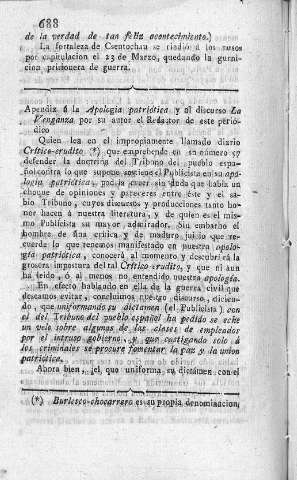 688
de la verdad de tan feliz acontecimiento.)
La fortaleza de Csentochau se rindió á los rusos
por capitulacion el 23 de Marzo, quedando la guarni-
cion prisionera de guerra.
Apendix á la Apología patriótica, y al discurso La
Venganza por su autor el Redactor de este perió-
dico
Quien lea en el impropiamente llamado diario
Crítico-erudito (*), que emprehende en su número 57
defender la doctrina del Tribuno del pueblo espa-
ñol contra lo que supone sostiene el Publicista en su apo-
logía patriótica, podrá creer sin duda que habia un
choque de opiniones y pareceres entre éste y el sa-
bio Tribuno, cuyos discursos y producciones tanto ho-
nor hacen á nuestra literatura, y de quien es el mis-
mo Publicista su mayor admirador. Sin embargo el
hombre de fina crítica, y de maduro juicio que re-
cuerde lo que tenemos manifestado en nuestra apolo-
gía patriótica, conocerá al momento y descubrirá la
grosera impostura del tal Crítico-erudito, y que ni aun
ha leido, ó al menos no entendido nuestra apología.
En efecto hablando en ella de la guerra civil que
deseamos evitar, concluimos nuestro discurso, dicien-
do, que uniformando su dictamen (el Publicista) con
el del Tribuno del pueblo español ha pedido se eche
un velo sobre algunas de las clases de empleados
por el intruso gobierno, y que castigando solo á
los criminales se procure fomentar la paz y la union
patriótica.
Ahora bien, ¿el que uniforma su dictámen con el
(*) Burlesco-chocarrero es su propia denominacion,